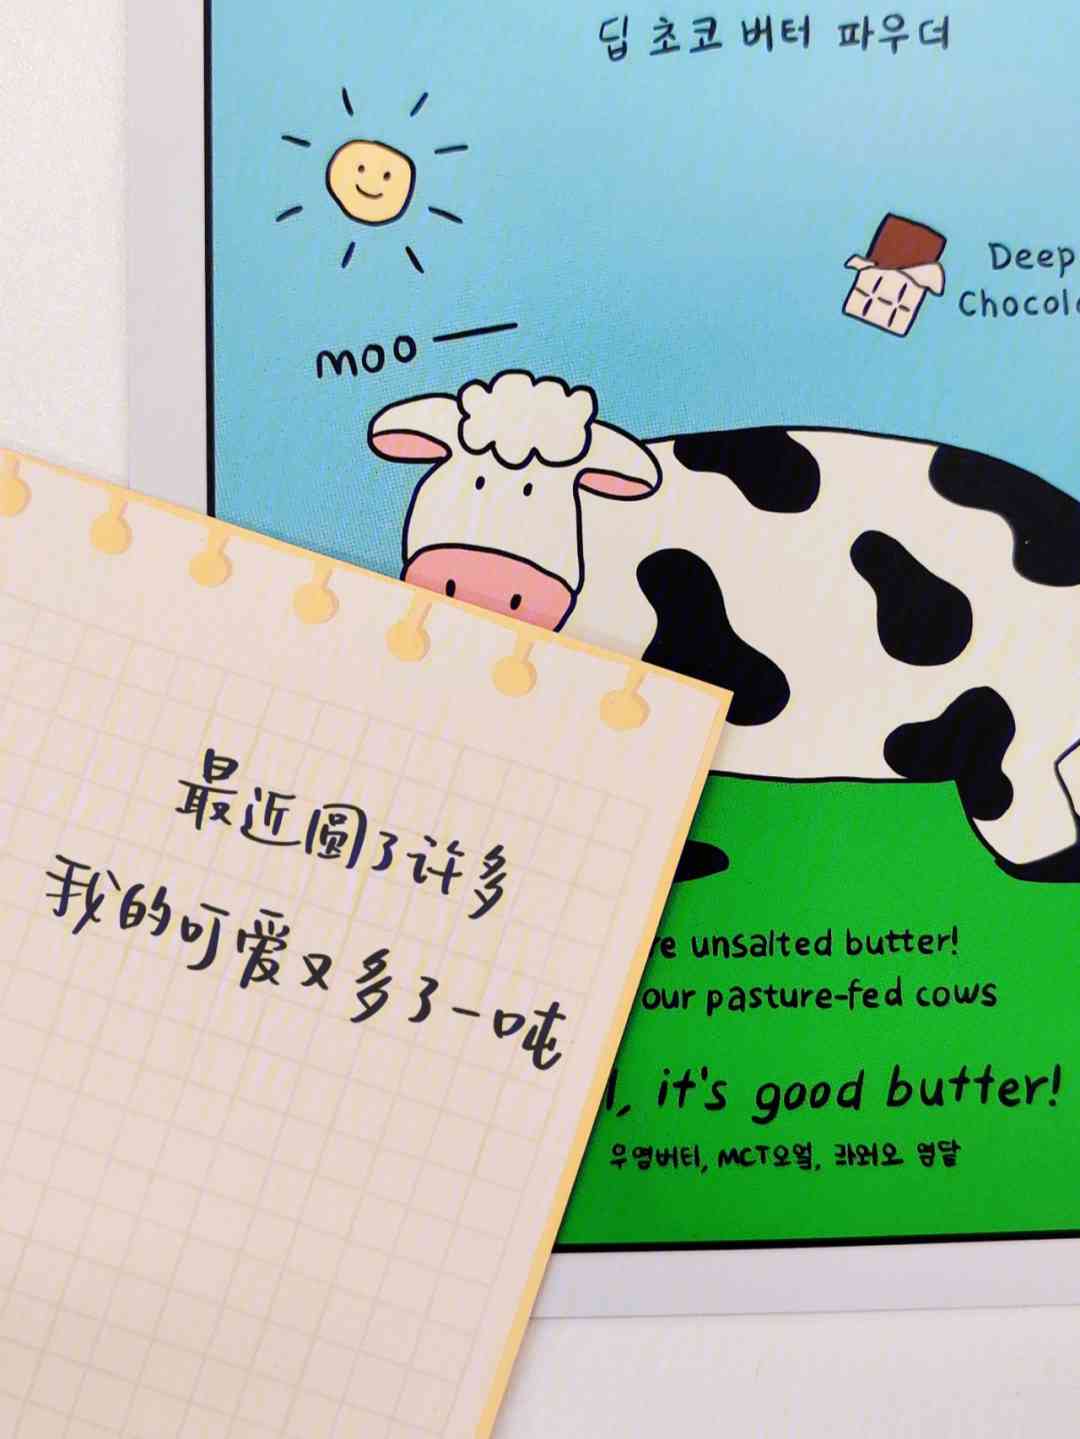 딥 초코 버터 파우더
Deep
moo
最近圆了许多
我的可爱又多了一吨
unsalted butter!
our pasture-fed cows
it's good butter!
MCT오일,